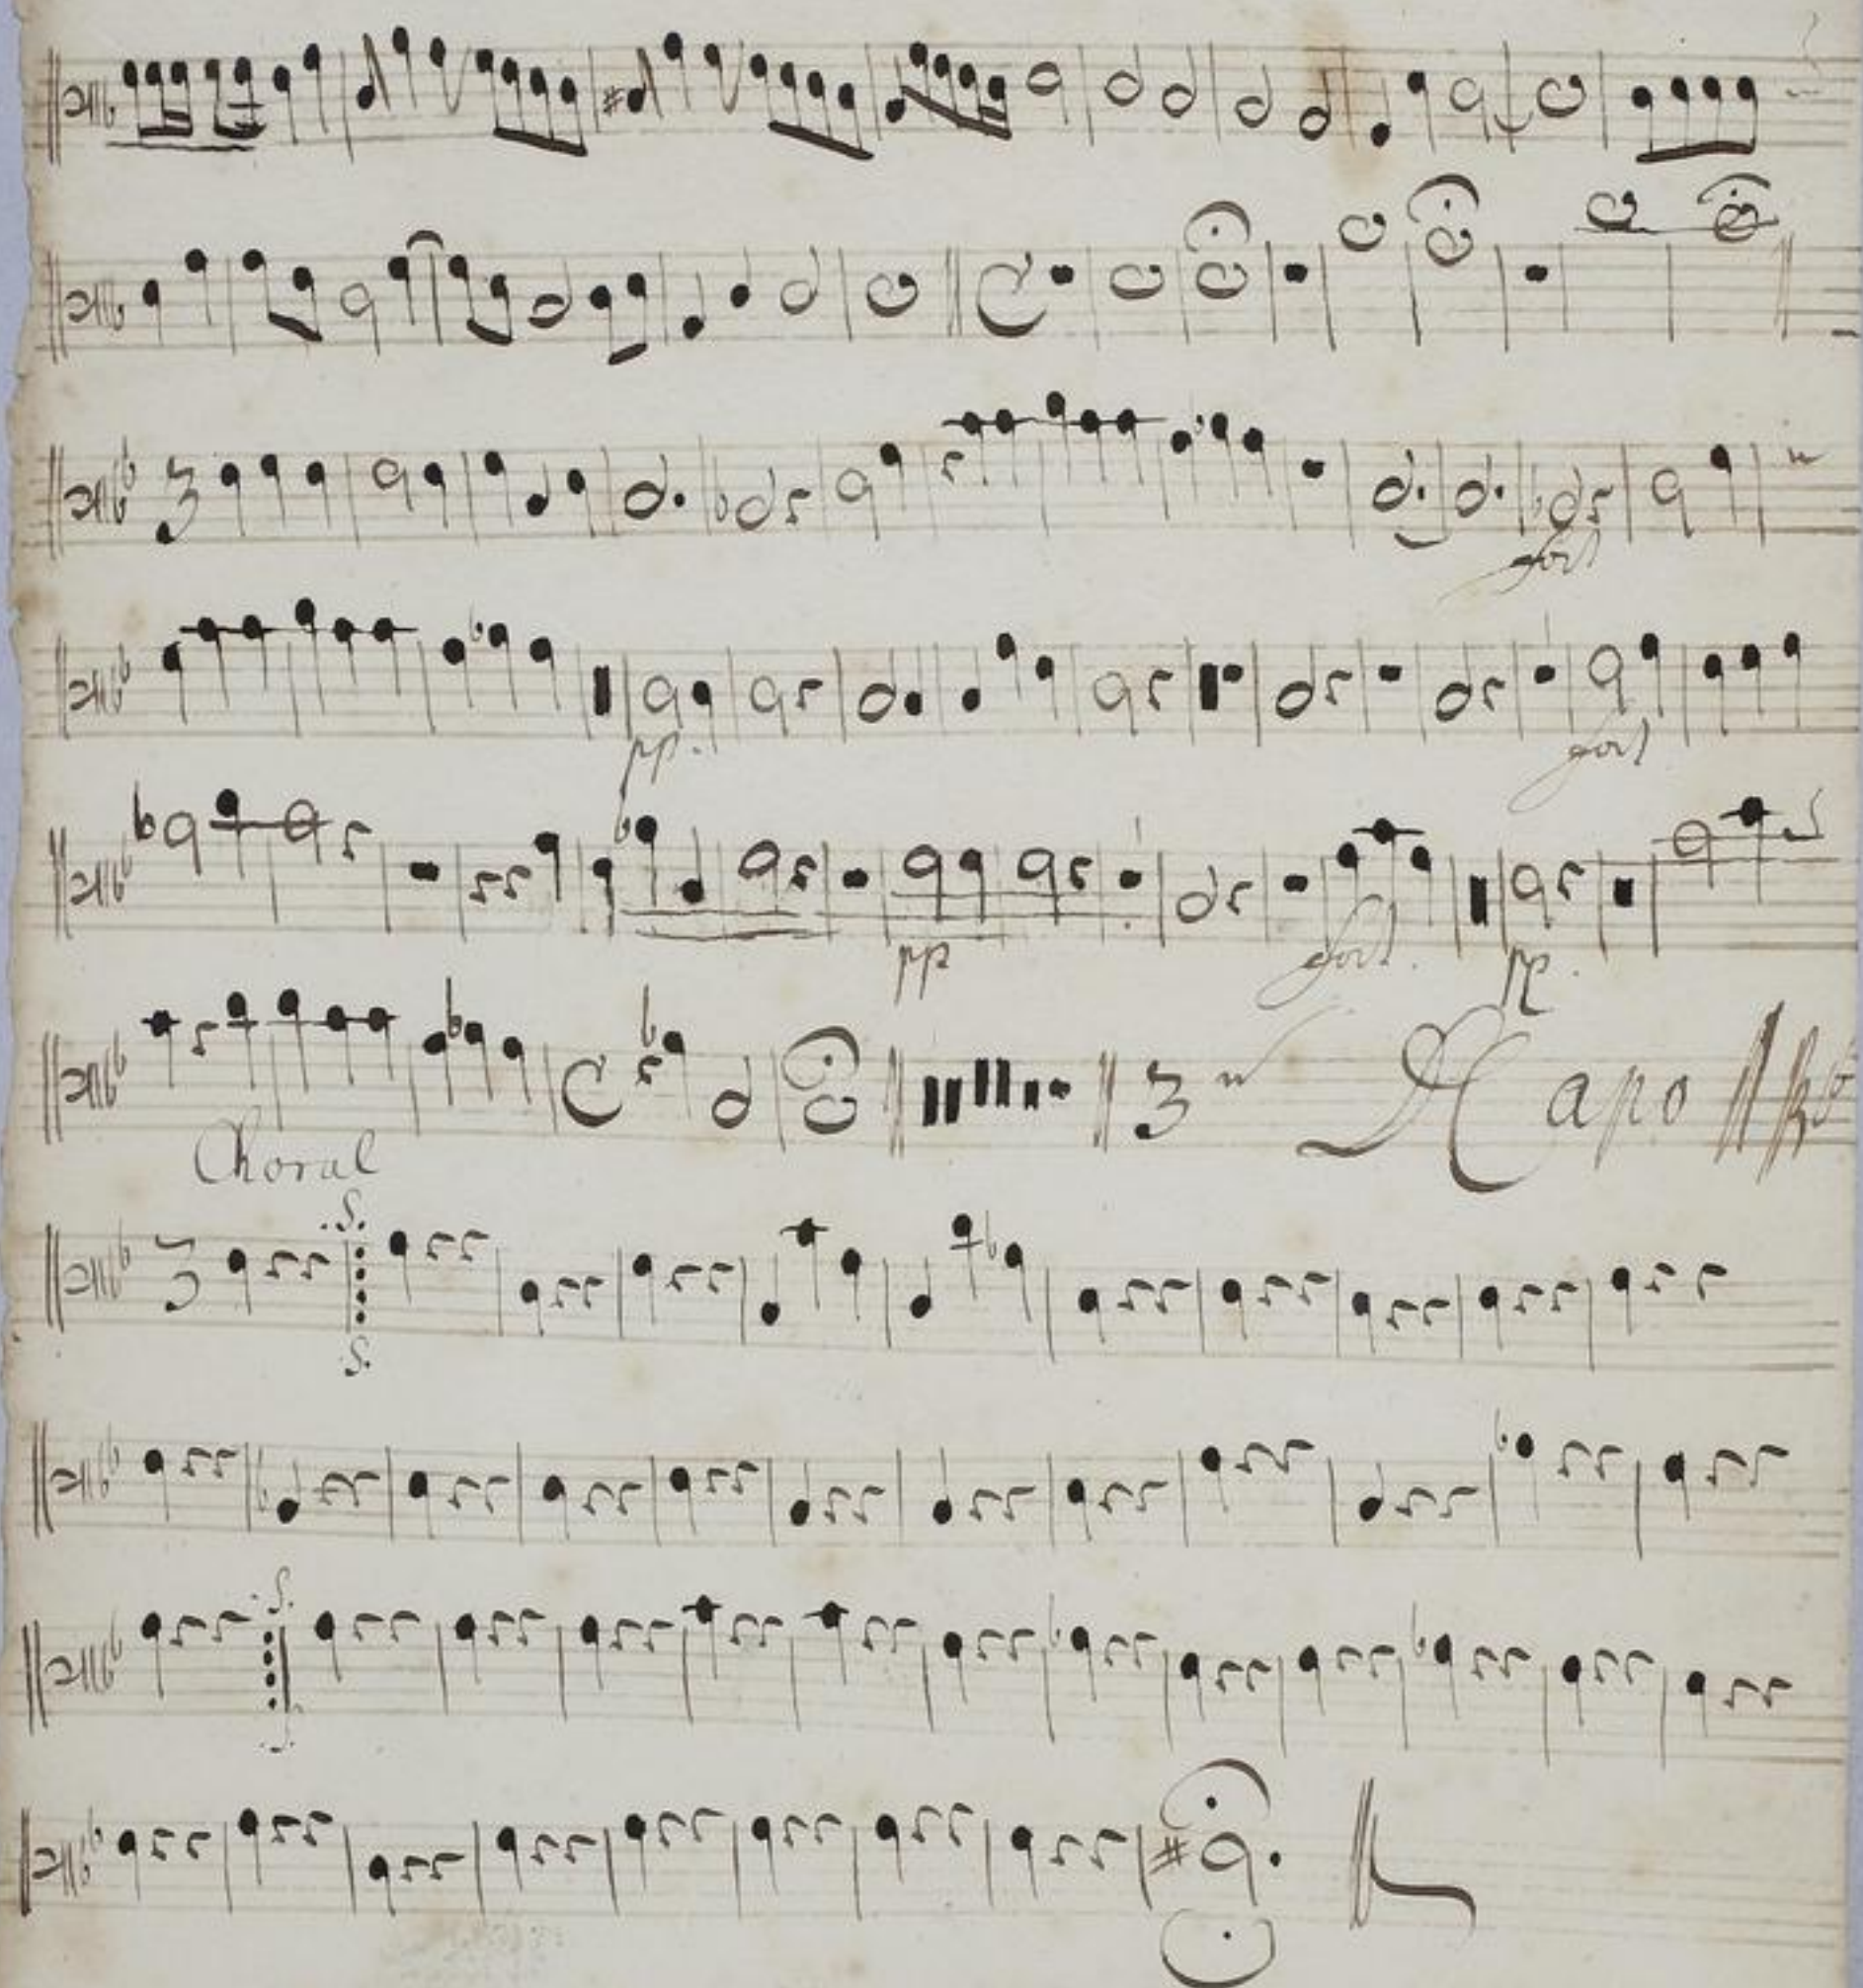 fort
pp.
fort
pp
fort.
pp.
C
3
Capo
Choral
.S.
3
S.
.S.